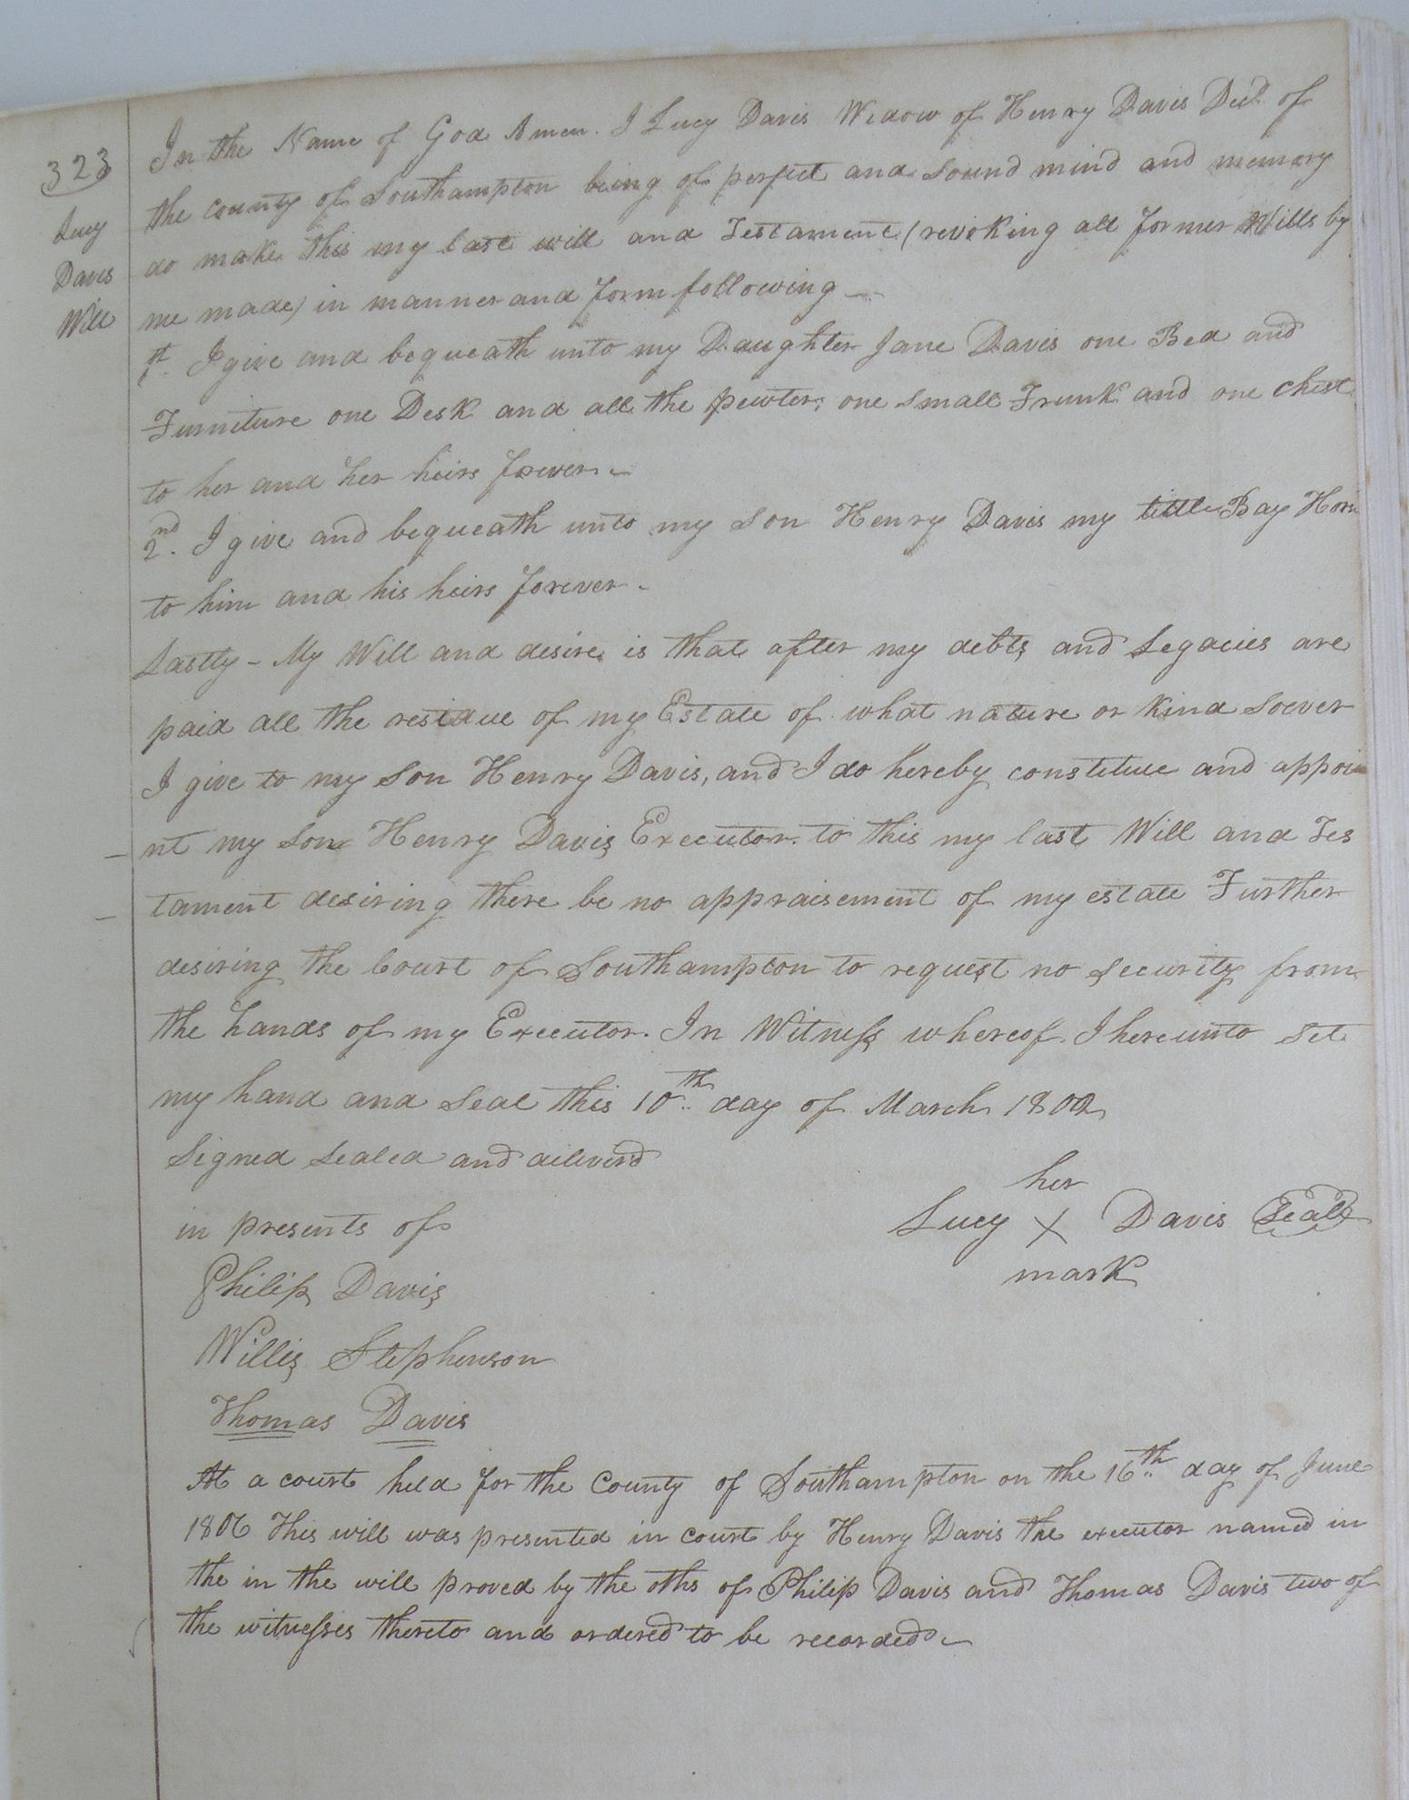 323
Lucy
Davis
Will
In the Name of God Amen. I Lucy Davis Widow of Henry Davis Decd. of
the county of Southampton being of perfect and sound mind and memory
do make this my last will and Testament (revoking all former Wills by
me made) in manner and form following —
1st. I give and bequeath unto my Daughter Jane Davis one Bed and
Furniture one Desk and all the pewter; one small Trunk and one chest
to her and her heirs forever –
2nd. I give and bequeath unto my son Henry Davis my little Bay
to him and his heirs forever –
Lastly – My Will and desire is that after my debts and Legacies are
paid all the residue of my Estate of what nature or kind soever
I give to my son Henry Davis, and I do hereby constitute and appoi
nt my son Henry Davis Executor to this my last Will and Tes
tament desiring there be no appraisement of my estate Further
desiring the Court of Southampton to request no security from
the hands of my Executor. In Witness whereof I hereunto set
my hand and seal this 10th day of March 1802
Signed sealed and deliverd
in presents of
her
Lucy X Davis Seal
mark
Philip Davis
Willis Stephenson
Thomas Davis
At a court held for the County of Southampton on the 16th day of June
1806 This will was presented in court by Henry Davis the executor named in
the in the will proved by the oths of Philip Davis and Thomas Davis two of
the witnesses thereto and ordered to be recorded –